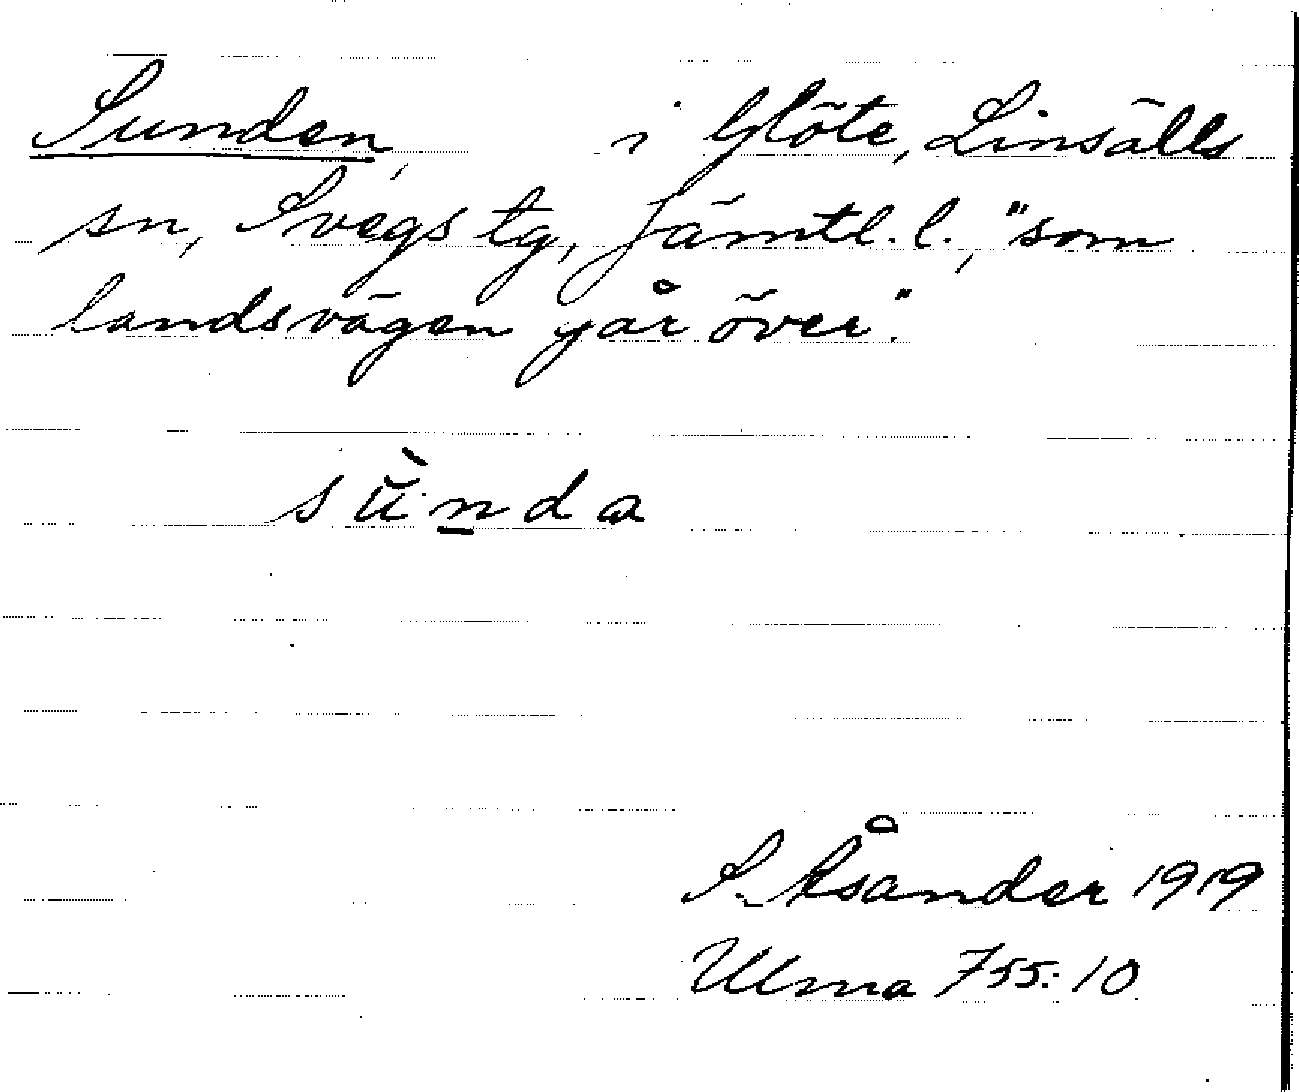 Sunden, i Glöte, Linsälls
sn, Svegs tg, Jämtl. l., "som
landsvägen går över."
sŭ̀n̲da
S. Åsander 1919
Ulma 755:10